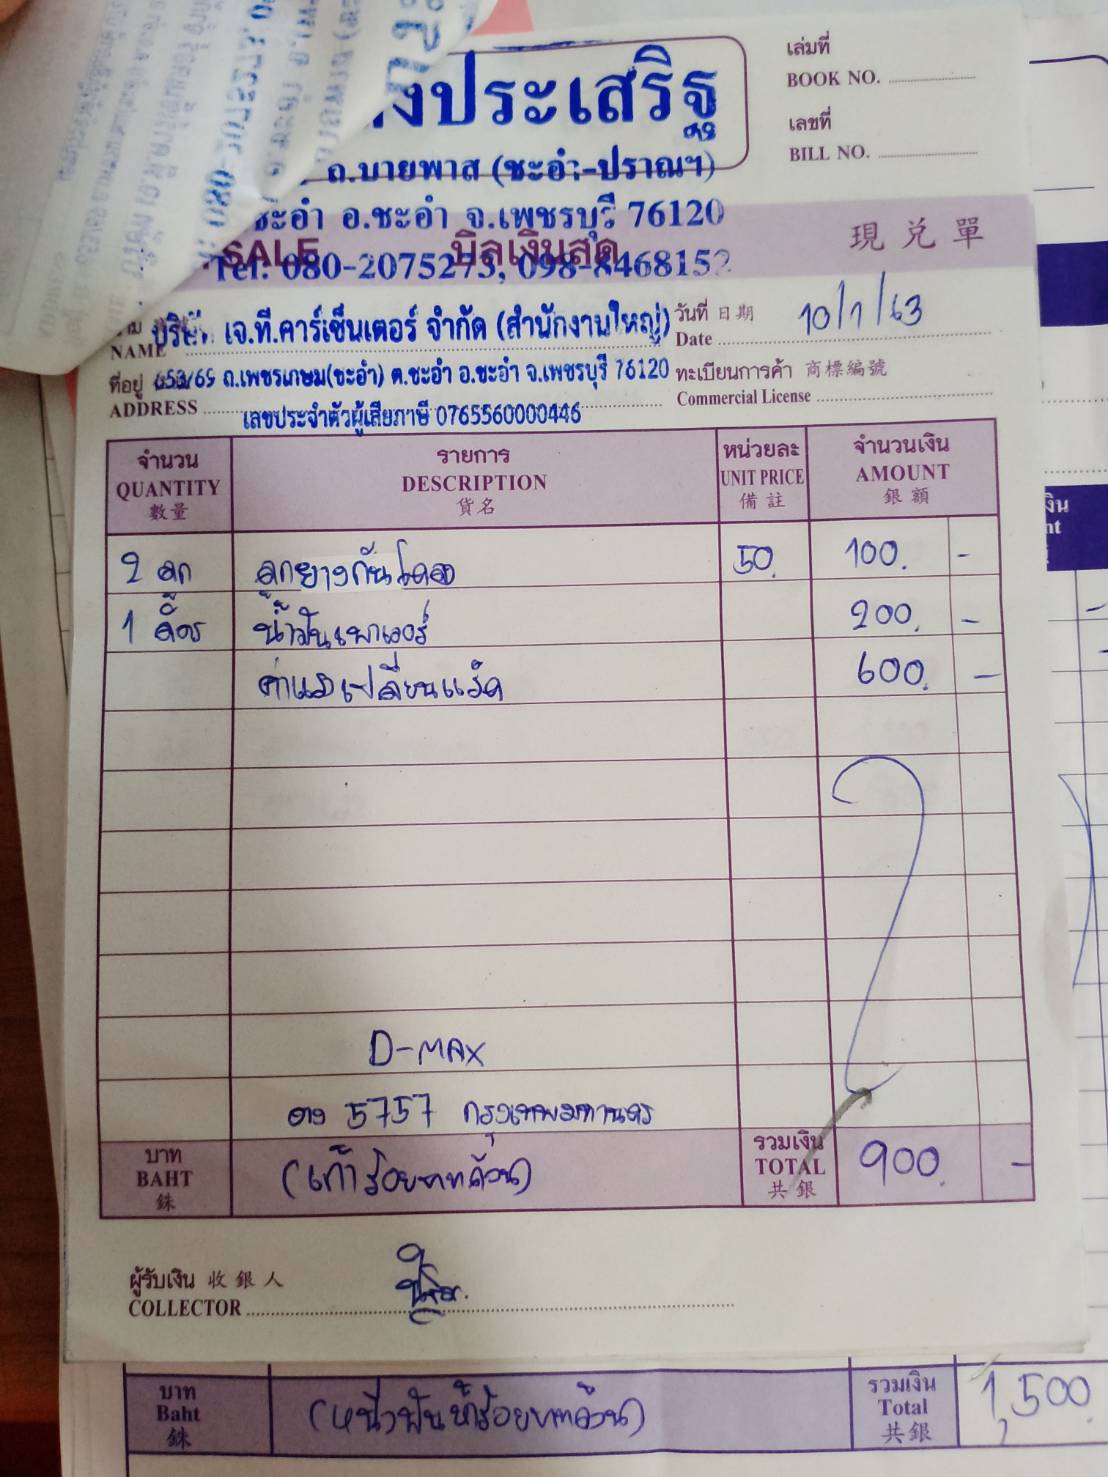 งประเสริฐ
เล่มที่
BOOK NO.
เลขที่
BILL NO.
ถ.บายพาส (ชะอำ-ปราณฯ)
ชะอำ อ.ชะอำ จ.เพชรบุรี 76120
SALE บิลเงินสด 現兌單
Tel. 080-2075273, 098-8468152
NAME บริษัท เจ.ที.คาร์เซ็นเตอร์ จำกัด (สำนักงานใหญ่)
วันที่ 日期 10/1/63
Date
ที่อยู่ 653/65 ถ.เพชรเกษม(ชะอำ) ต.ชะอำ อ.ชะอำ จ.เพชรบุรี 76120
ทะเบียนการค้า 商標編號
ADDRESS เลขประจำตัวผู้เสียภาษี 0765560000446
Commercial License
จำนวน รายการ หน่วยละ จำนวนเงิน
QUANTITY DESCRIPTION UNIT PRICE AMOUNT
數量 貨名 備註 銀額
2 ลูก ลูกยางกันโคลง 50. 100. -
1 ลิตร น้ำมันเพาเวอร์ 200. -
ค่าแรงเปลี่ยนแร็ค 600. -
D-MAX
5757 กรุงเทพมหานคร
บาท
BAHT
銖
(เก้าร้อยบาทถ้วน)
รวมเงิน
TOTAL
共銀
900. -
ผู้รับเงิน 收銀人
COLLECTOR
บาท
Baht
銖
(หนึ่งพันห้าร้อยบาทถ้วน)
รวมเงิน
Total
共銀
1,500